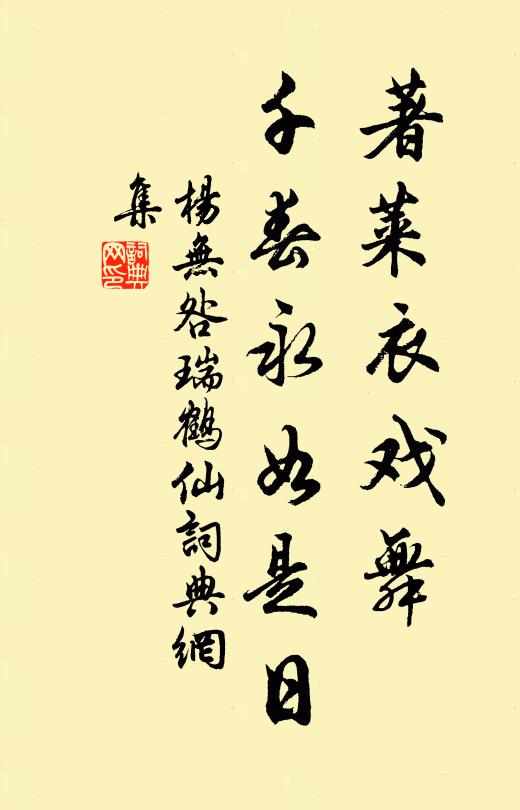 著菜衣戏舞
千春永如是日
楊無咎瑞鶴仙詞典網
集
詞典網印